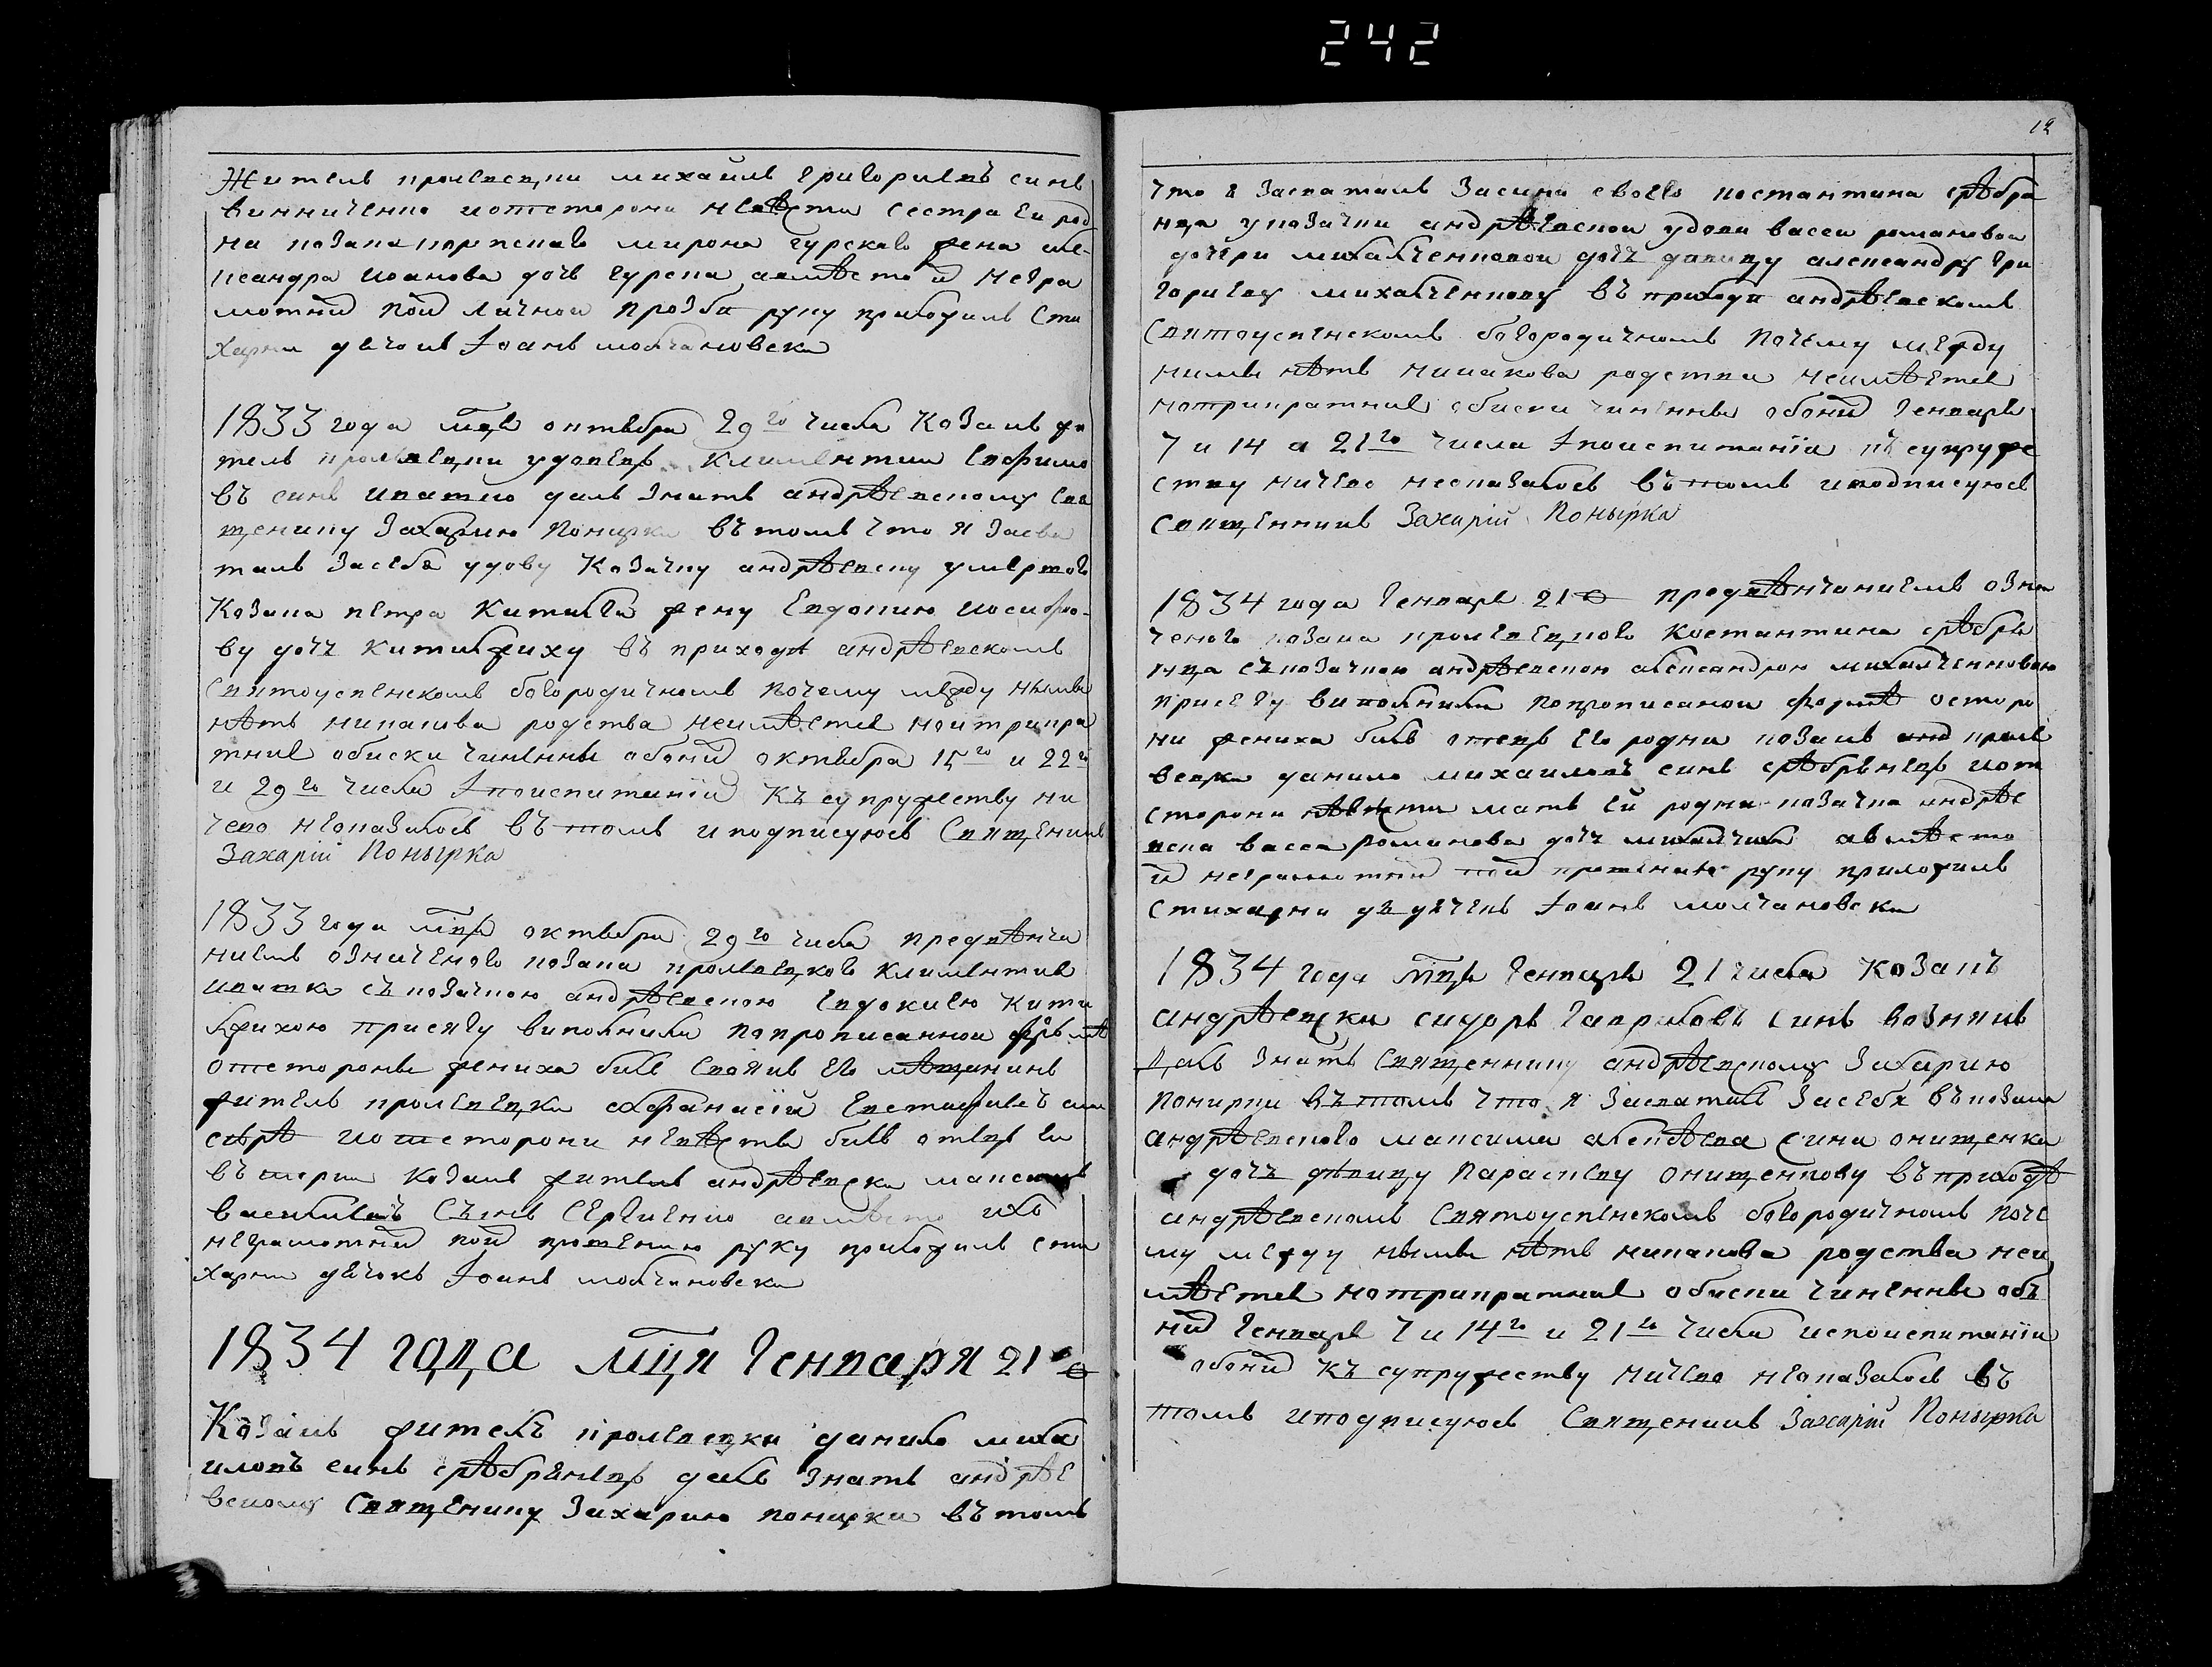 242
Житель промевецки михаилъ григориевъ синъ
винниченко иотстороны невѣсти сестра еи род
на козака гурскаго мирона гурскаго жена але-
ксандра иоанова дочь гурска авмѣсто и негра
мотній поій личнои прозби руку приложилъ Сти
харни дячокъ Іоанъ молчановски
1833 года мця октября 29го числа Козакъ жи
тель промевецки удовецъ Климентии евфимо
въ синъ ипатко далъ знать андрѣевскому Свя
щенику Захарию Понирки въ томъ что я засва
талъ засебя удову козачку андрѣевску умертого
Козака петра Китайла жену Евдокию иосифо-
ву дочь китайлиху въ приходѣ андрѣевскомъ
Святоуспенскомъ богородичномъ почему между ными
нѣтъ никакова родства неимѣется нотрикра
тние обиски чиненны обоній октября 15го и 22го
и 29го числа Апоиспитаніи къ супружеству ни
чево неоказалось въ томъ иподписуюсь Священикъ
Захарій Понырка
1833 года мця октября 29го числа предвѣнча
ниемъ означеного козака промевецкого климентия
ипатка съ козачкою андрѣевскою евдокиею кита
йлихою присягу виполнили попрописаннои формѣ
отстороны жениха билъ Своякъ его мѣщанинъ
житель промевецки афанасій евстафиевъ синъ
сѣрѣ иотстороны невѣсты билъ отецъ еи
въ торы Козакъ житель андрѣевски максимъ
василиевъ Сынъ Сергиенко авмѣсто ихъ
неграмотній поій прошению руку приложилъ сти
харни дячокъ Іоанъ молчановски
1834 года мця Генваря 21 о
Козакъ житель промевецки данило миха
иловъ синъ срѣбрянецъ далъ знать андрѣе
вскому Священику Захарию понирки въ томъ
12
что я Засваталъ Засина своего костантина срѣбра
нца укозачки андрѣевскои удови васси романовои
дочери михалченковои дочь дивицу александру гри
гориеву михалченкову въ приходи андрѣевскомъ
Святоуспенскомъ богородичномъ почему между
нимы нѣтъ никакова родства неимѣется
нотрикратние обиски чиненны обоній Генваря
7 и 14 а 21го числа Апоиспитаніи къ супруже
ству ничево неоказалось въ томъ иподписуюсь
Священникъ Захарій Понырка
1834 года Генваря 21 о предвѣнчаниемъ озна
ченого козака промевецкого Костантина срѣбря
нца съ козачкою андрѣевскою александрою михалченковою
присягу виполнили попрописанои формѣ осторо
ни жениха билъ отецъ его родни козакъ анд проме
вецки данило михаиловъ синъ срѣбрянецъ иот
стороны нѣвѣсти мать ей родна козачка андрѣе
вска васса романова дочь михалчиха авмѣсто
и неграмотній поій прошению руку приложилъ
стихарни дядячекъ Іоанъ молчановски
1834 года мця Генваря 21 числа Козакъ
андрѣевски сидоръ гавриловъ синъ вознякъ
Далъ знать Священнику андрѣевскому Захарию
понирки въ томъ что я Засваталъ Засебя въ козака
андрѣевского максима алексѣева сина онищенка
дочь дѣвицу параскеву онищенкову въ приходѣ
андрѣевскомъ Святоуспенскомъ богородичномъ поче
му между нымы нѣтъ никакова родства неи
мѣется нотрикратние обиски чиненны объ
ній Генваря 7 и 14го и 21го числа ипоиспитаніи
обоній къ супружеству ничево неоказалось въ
томъ иподписуюсь Священикъ Захарій Понырка